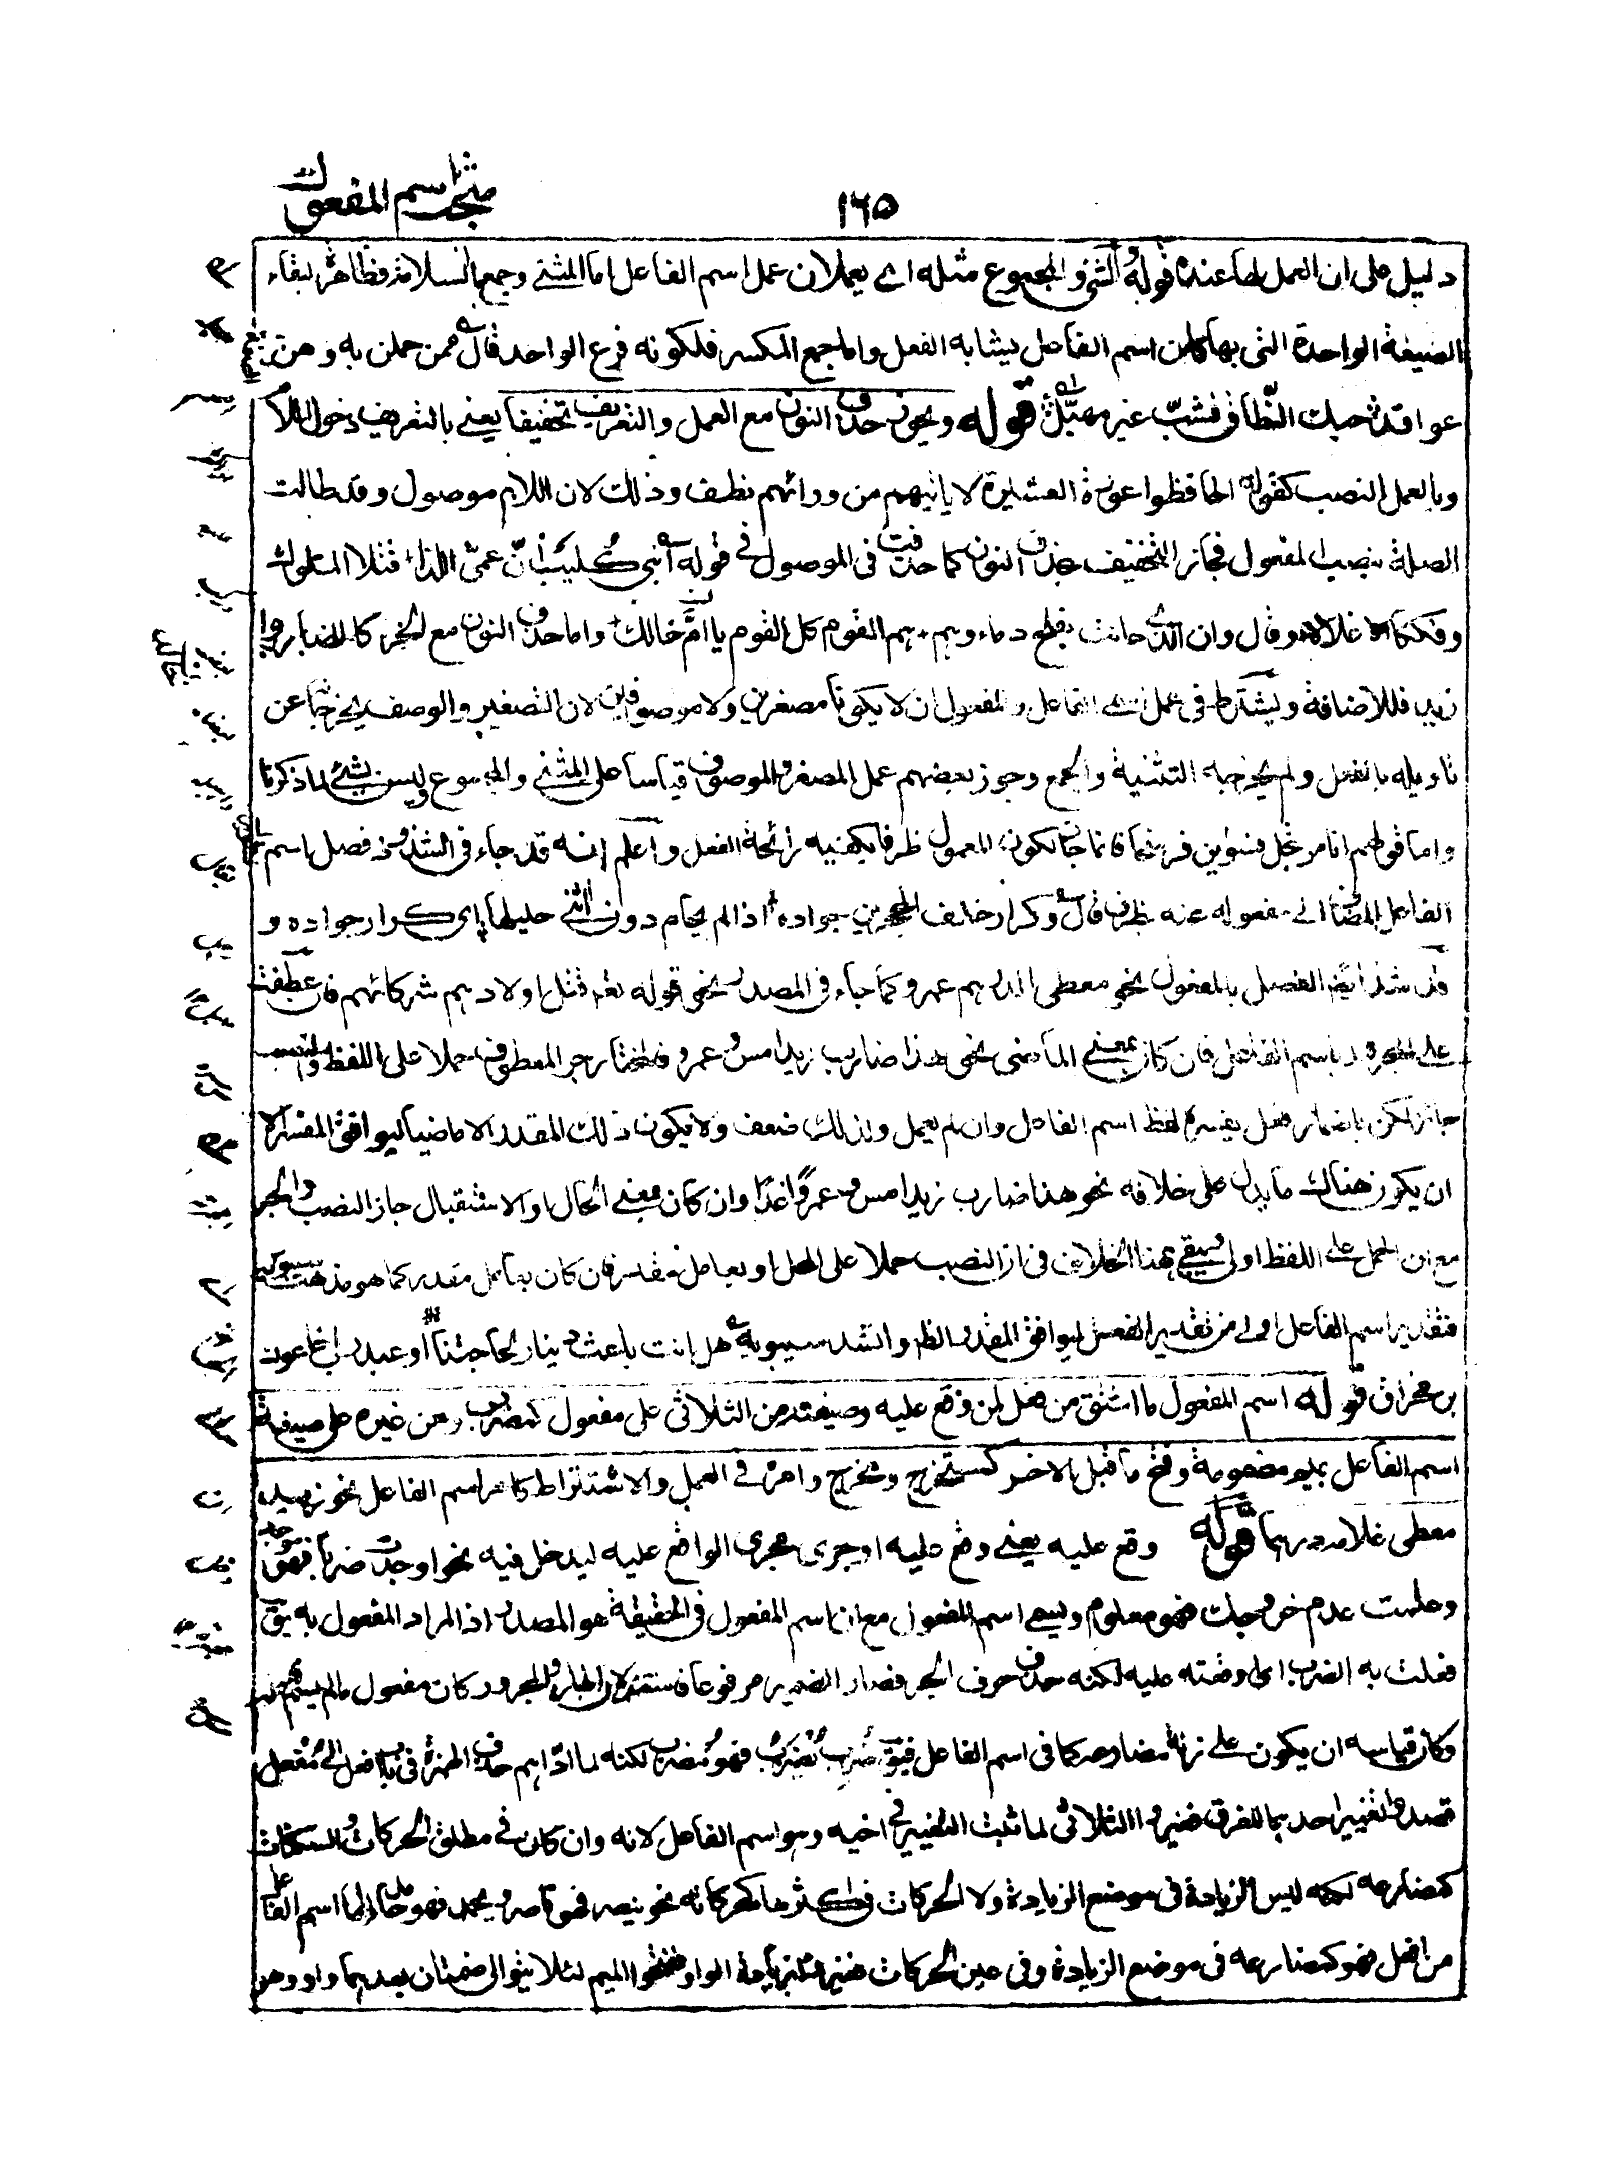 ١٦٥
مبحث اسم المفعول
دليل على ان العمل لها عنده قوله والمثنى والمجموع مثله اى يعملان عمل اسم الفاعل اما المثنى وجمع السلامة فظاهر لبقاء
الصيغة الواحدة التى بها كان اسم الفاعل يشابه الفعل واما جمع المكسر فلكونه فرع الواحد قال ممن حملن به وهن
عواقد حبك النطاق فشب غير مهبل قوله ويجوز حذف النون مع العمل والتعريف تخفيفا يعنى بالتعريف دخول اللام
وبالعمل النصب كقوله الحافظوا عورة العشيرة لا ياتيهم من ورائهم نطف وذلك لان اللام موصول وقد طالت
الصلة بنصب المفعول فجاز التخفيف بحذف النون كما حذفت فى الموصول فى قوله ابنى كليب ان عمى اللذا قتلا الملوك
وفككا الاغلالا وقال وان الذى حانت بفلج دماءهم هم القوم كل القوم يا ام خالد واما حذف النون مع الجر كالضاربوا
زيد فللاضافة ويشترط فى عمل اسمى الفاعل والمفعول ان لا يكونا مصغرين ولا موصوفين لان التصغير والوصف يخرجهما عن
تاويله بالفعل ولم يخرجه التثنية والجمع وجوز بعضهم عمل المصغر والموصوف قياسا على المثنى والمجموع وليس بشئ لما ذكرنا
واما قولهم انا مرتحل فسويئر فرسخا فانما جاز لكون المعمول ظرفا يكفيه رائحة الفعل واعلم انه قد جاء فى الشذوذ فصل اسم
الفاعل المضاف الى مفعوله عنه بظرف قال وكرار خلف المجحرين جواده اذا لم يحام دون انثى حليلها اى كرار جواده و
قد شذ ايضا الفصل بالمفعول نحو معطى الدرهم عمرو كما جاء فى المصدر نحو قوله تعم قتل اولادهم شركائهم فان عطفت
على المجرور باسم الفاعل فان كان بمعنى الماضى نحو هذا ضارب زيد امس وعمرو فالمختار جر المعطوف حملا على اللفظ والنصب
جائز لكن باضمار فعل يفسره لفظ اسم الفاعل وان لم يعمل ولذلك ضعف ولا يكون ذلك المقدر الا ماضيا ليوافق المفسر الا
ان يكون هناك ما يدل على خلافه نحو هذا ضارب زيد امس وعمروا غدا وان كان بمعنى الحال او الاستقبال جاز النصب والجر
مع ان الحمل على اللفظ اولى ويبقى ههنا الخلاف فى ان النصب حملا على المحل او بعامل مقدر فان كان بعامل مقدر كما هو مذهب سيبويه
فتقدير اسم الفاعل اولى من تقدير الفعل ليوافق المقدر الظاهر وانشد سيبويه هل انت باعث دينار لحاجتنا او عبد رب اخا عون
بن مخراق قوله اسم المفعول ما اشتق من فعل لمن وقع عليه وصيغته من الثلاثى على مفعول كمضروب ومن غيره على صيغة
اسم الفاعل بميم مضمومة وفتح ما قبل الآخر كمستخرج ومخرج وامره فى العمل والاشتراط كامر اسم الفاعل نحو زيد
معطى غلامه درهما قوله وقع عليه يعنى وقع عليه او جرى مجرى الواقع عليه ليدخل فيه نحو اوجدت ضربا فهو موجد
وعلمت عدم خروجك فهو معلوم وسمى اسم المفعول مع ان اسم المفعول فى الحقيقة هو المصدر اذ المراد المفعول به يق
فعلت به الضرب اى اوقعته عليه لكنه حذف حرف الجر فصار الضمير مرفوعا فاستتر لان الجار والمجرور كان مفعول ما لم يسم فاعله
وكان قياسه ان يكون على زنة مضارعه كما فى اسم الفاعل فيق ضرب يضرب فهو مضرب لكنه لما اداهم حذف الهمزة فى باب افعل الى مفعل
قصدوا تغيير احدهما للفرق فغيروا الثلاثى لما ثبت التغيير فى اخيه وهو اسم الفاعل لانه وان كان فى مطلق الحركات والسكنات
كمضارعه لكنه ليس الزيادة فى موضع الزيادة ولا الحركات فى اكثرها كحركاته نحو ينصر فهو ناصر ويحمد فهو حامد واما اسم الفاعل
من افعل فهو كمضارعه فى موضع الزيادة وفى عين الحركات فغيروه بزيادة الواو ففتحوا الميم لئلا يتوالى ضمتان بعدهما واو وهو